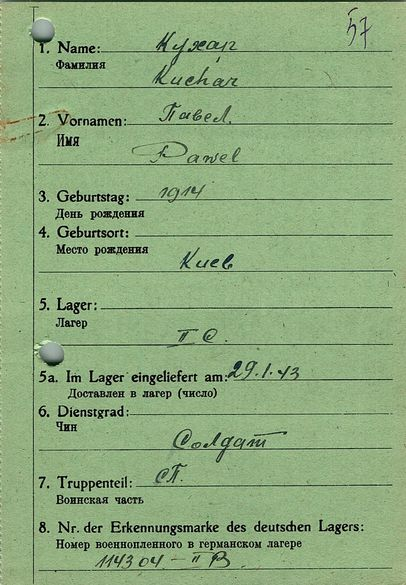 57
1. Name: Кухар
Фамилия
Kuchar
2. Vornamen: Павел.
Имя
Pawel
3. Geburtstag: 1914
День рождения
4. Geburtsort:
Место рождения
Киев
5. Lager:
Лагер
II C.
5a. Im Lager eingeliefert am: 29.1.43
Доставлен в лагер (число)
6. Dienstgrad:
Чин
Солдат
7. Truppenteil: СП.
Воинская часть
8. Nr. der Erkennungsmarke des deutschen Lagers:
Номер военнопленного в германском лагере
114304 – II B.